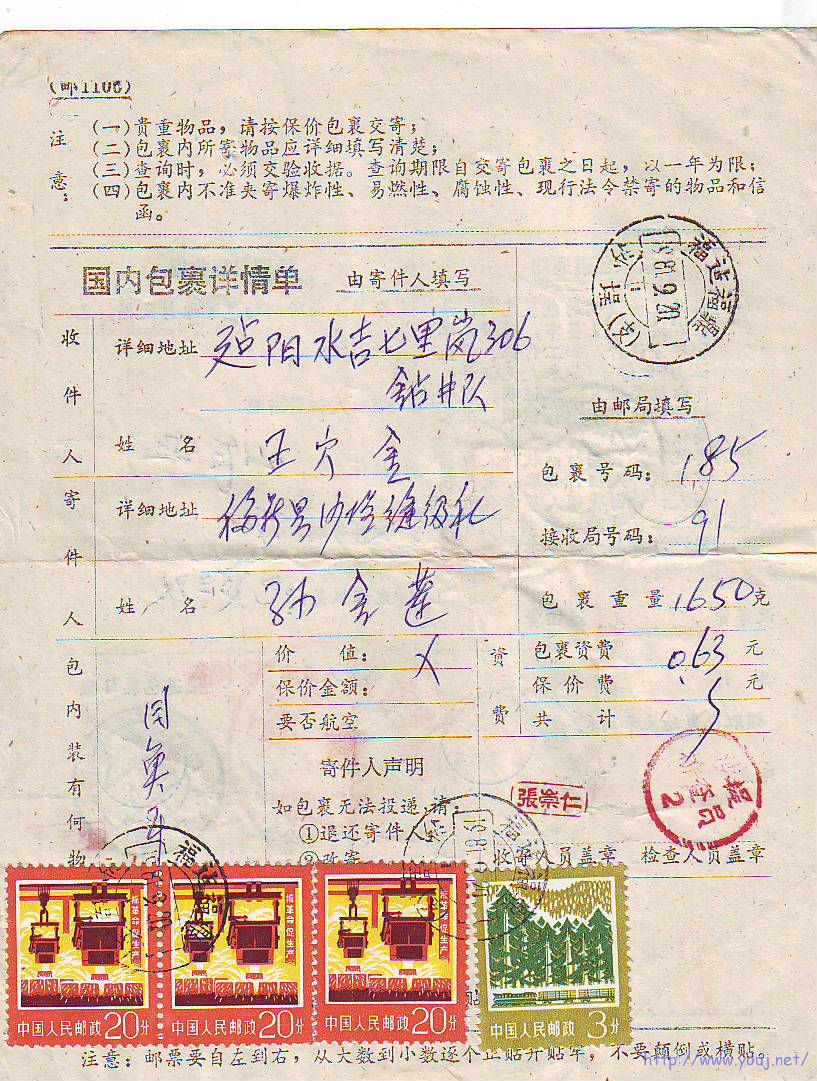 (邮1106)
注意：
(一)贵重物品，请按保价包裹交寄；
(二)包裹内所寄物品应详细填写清楚；
(三)查询时，必须交验收据。查询期限自交寄包裹之日起，以一年为限；
(四)包裹内不准夹寄爆炸性、易燃性、腐蚀性、现行法令禁寄的物品和信
函。
国内包裹详情单 由寄件人填写
收件人
详细地址 阳水吉七里岚306
钻井队
姓名 王 金
寄件人
详细地址
姓名 孙金莲
由邮局填写
包裹号码： 185
接收局号码： 91
包裹重量 1650克
包裹资费 0.63 元
保价费 元
共计
资费
价值： X
保价金额：
要否航空
包内装有何物
寄件人声明
如包裹无法投递，请：
①退还寄件人
②改寄
張崇仁
收寄人员盖章 检查人员盖章
抓革命促生产
中国人民邮政 20分
抓革命促生产
中国人民邮政 20分
抓革命促生产
中国人民邮政 20分
中国人民邮政 3分
贴
注意：邮票要自左到右，从大数到小数逐个正贴开贴牢，不要颠倒或横贴。
http://www.youj.net/